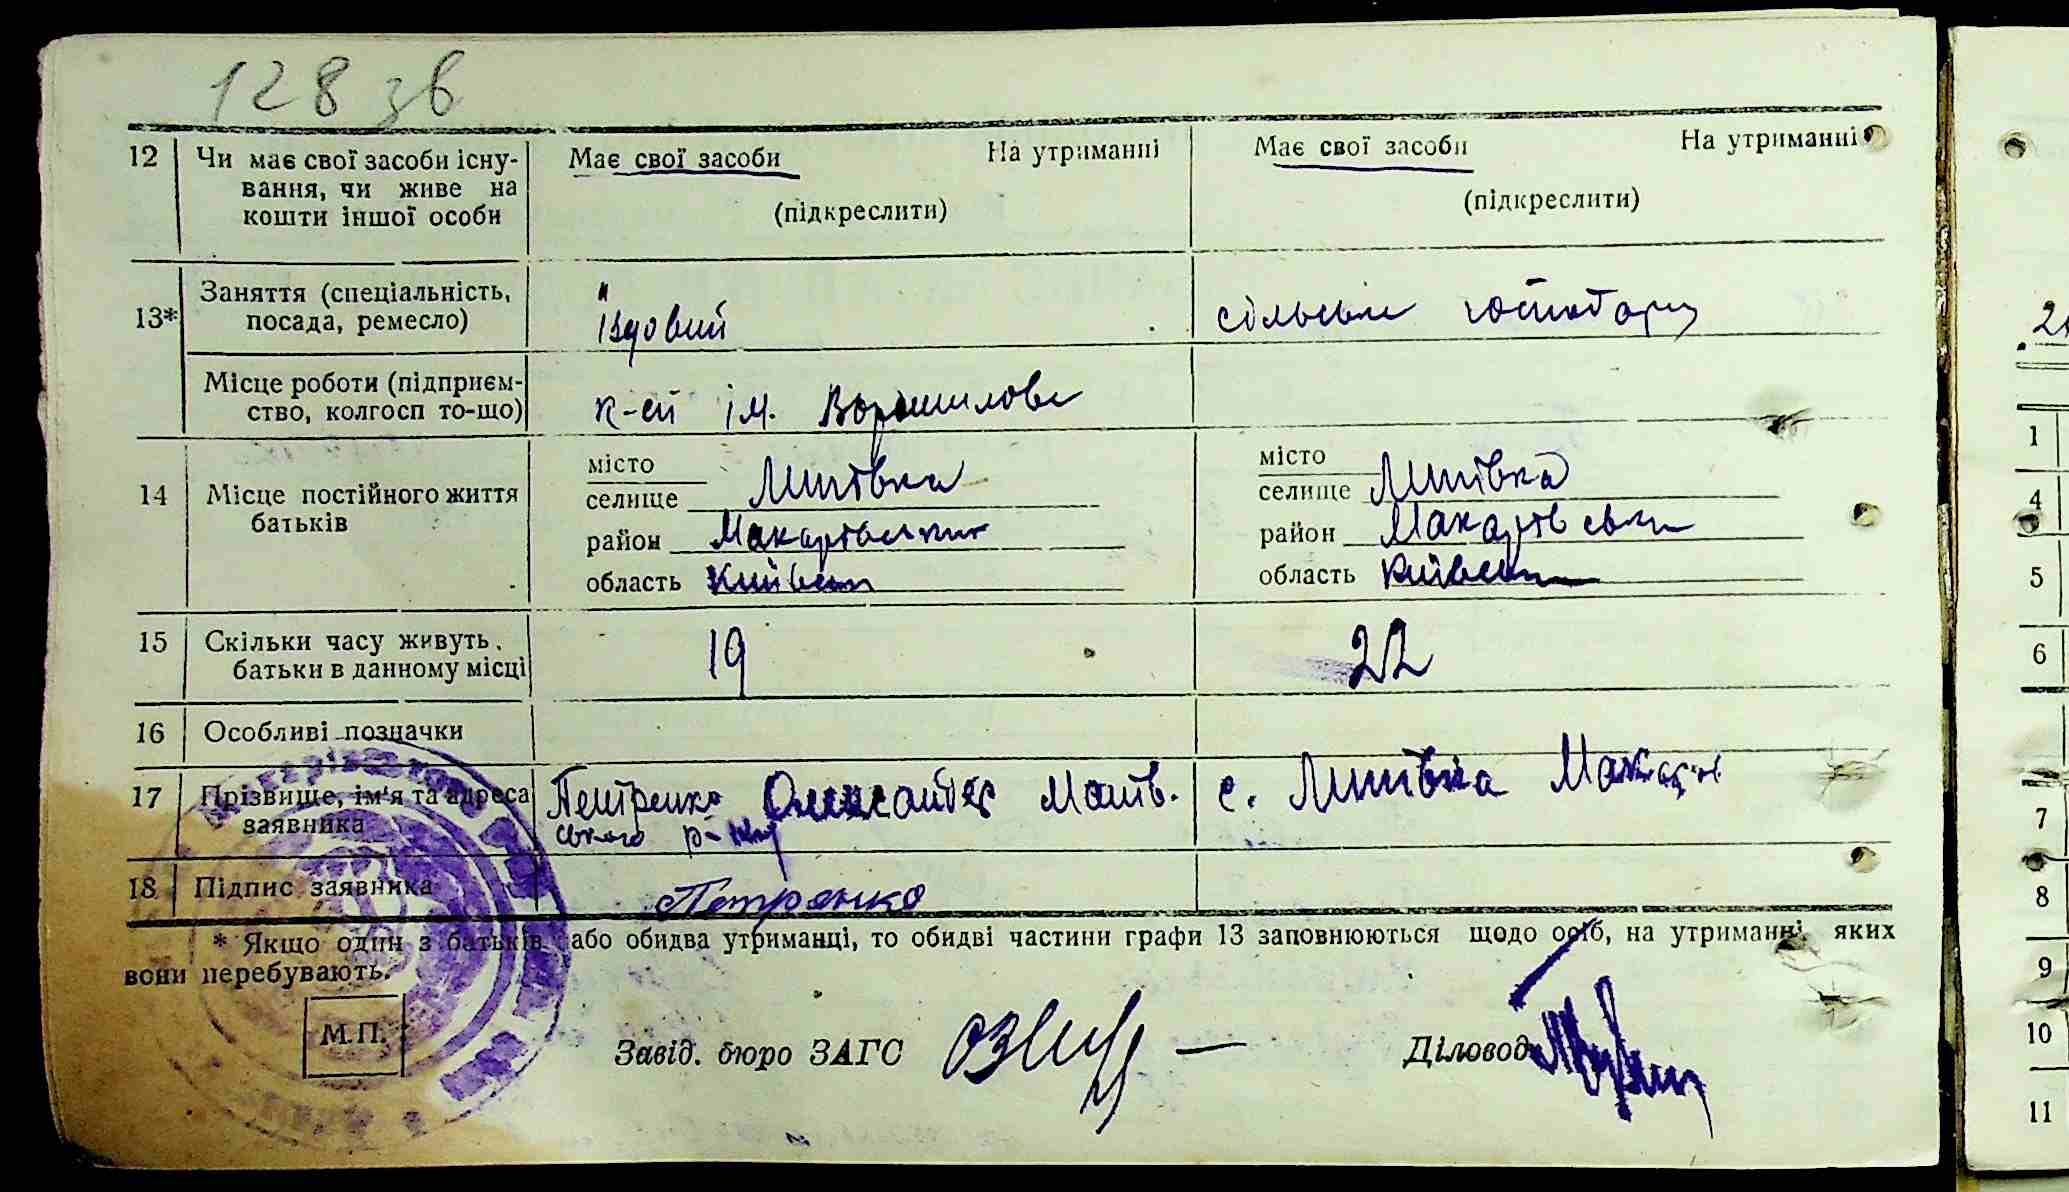 128 зв
12 Чи має свої засоби існування, чи живе на кошти іншої особи Має свої засоби На утриманні (підкреслити) Має свої засоби На утриманні (підкреслити)
13* Заняття (спеціальність, посада, ремесло) їздовий сільське господарц
Місце роботи (підприємство, колгосп то-що) к-сп ім. Ворошилова
14 Місце постійного життя батьків
місто селище Липівка місто селище Липівка
район Макарівський район Макарівськи
область Київськ область Київськ
15 Скільки часу живуть батьки в данному місці 19 22
16 Особливі позначки
17 Прізвище, ім'я та адреса заявника Петренко Олександр Матв. с. Липівка Макарів
ського р-ну
18 Підпис заявника Петренко
* Якщо один з батьків або обидва утриманці, то обидві частини графи 13 заповнюються щодо осіб, на утриманні яких
вони перебувають.
М.П. Завід. бюро ЗАГС Діловод
1
4
5
6
7
8
9
10
11